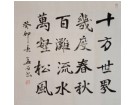 十方世界
幾度春秋
百灘流水
萬壑松風
癸卯